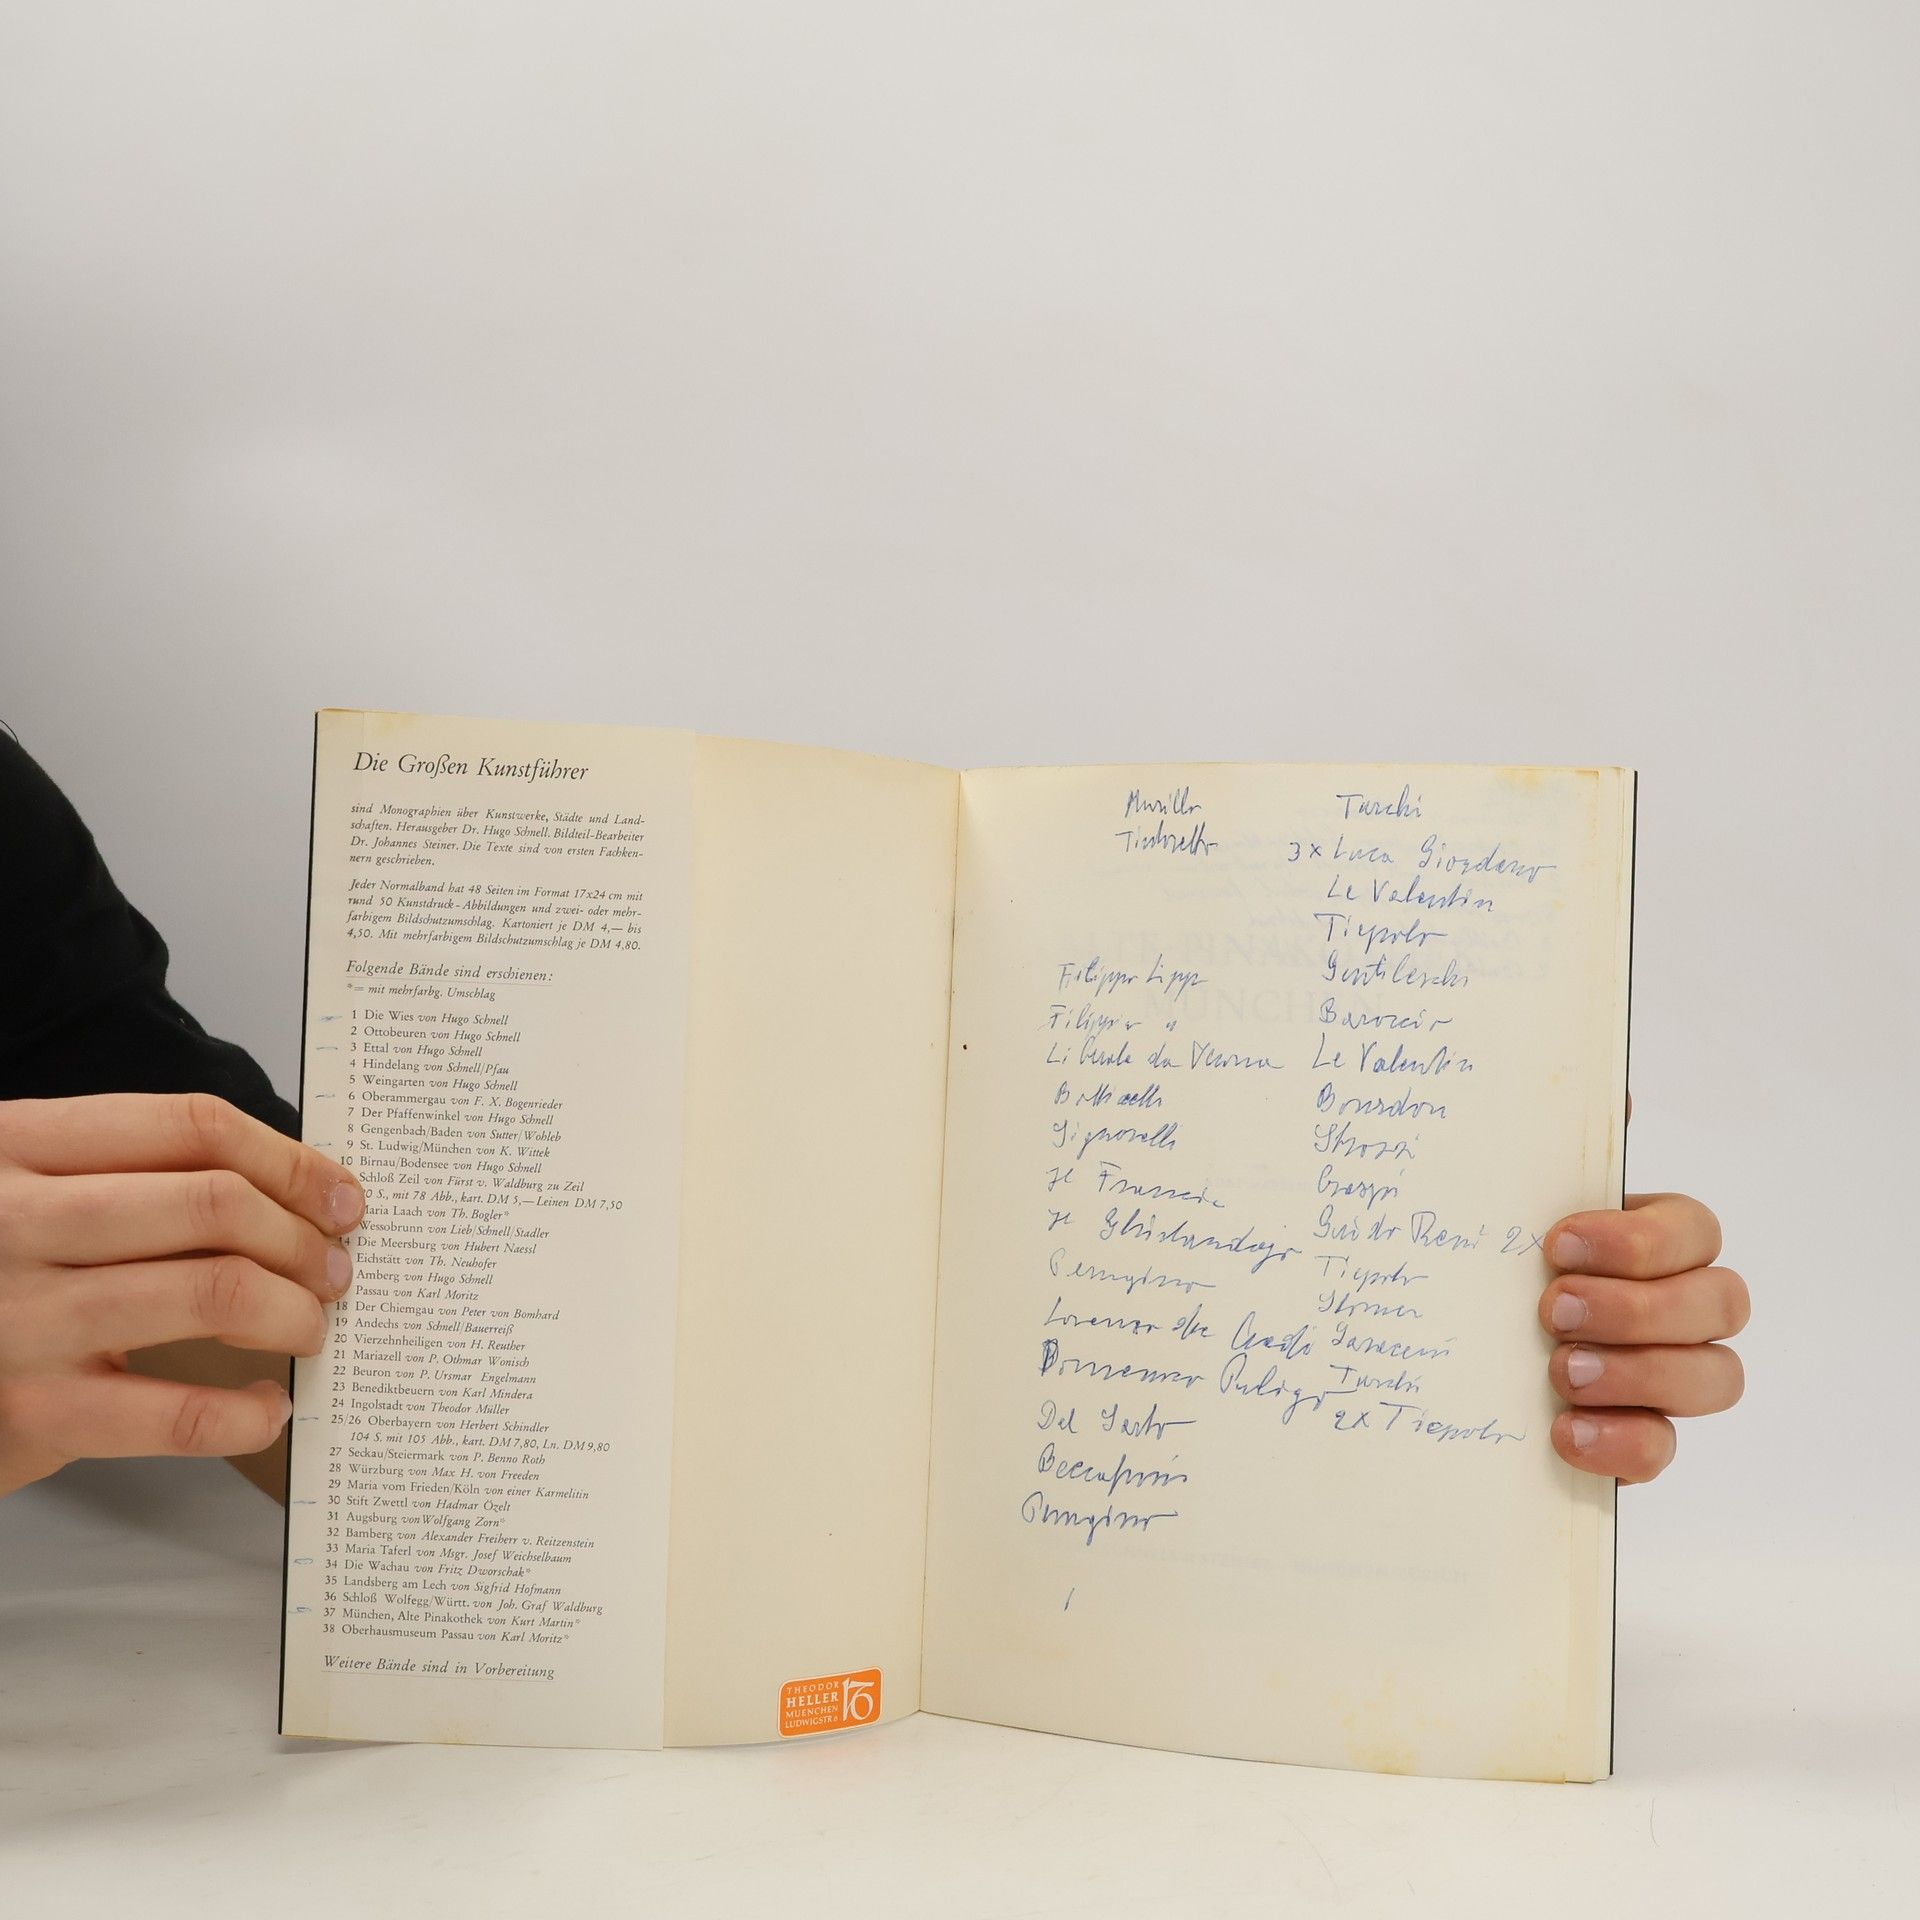 Die Großen Kunstführer
sind Monographien über Kunstwerke, Städte und Land-
schaften. Herausgeber Dr. Hugo Schnell. Bildteil-Bearbeiter
Dr. Johannes Steiner. Die Texte sind von ersten Fachken-
nern geschrieben.
Jeder Normalband hat 48 Seiten im Format 17x24 cm mit
rund 50 Kunstdruck-Abbildungen und zwei- oder mehr-
farbigem Bildschutzumschlag. Kartoniert je DM 4,— bis
4,50. Mit mehrfarbigem Bildschutzumschlag je DM 4,80.
Folgende Bände sind erschienen:
*= mit mehrfarbg. Umschlag
1 Die Wies von Hugo Schnell
2 Ottobeuren von Hugo Schnell
3 Ettal von Hugo Schnell
4 Hindelang von Schnell/Pfau
5 Weingarten von Hugo Schnell
6 Oberammergau von F. X. Bogenrieder
7 Der Pfaffenwinkel von Hugo Schnell
8 Gengenbach/Baden von Sutter/Wohleb
9 St. Ludwig/München von K. Wittek
10 Birnau/Bodensee von Hugo Schnell
Schloß Zeil von Fürst v. Waldburg zu Zeil
0 S., mit 78 Abb., kart. DM 5,— Leinen DM 7,50
Maria Laach von Th. Bogler*
Wessobrunn von Lieb/Schnell/Stadler
14 Die Meersburg von Hubert Naessl
Eichstätt von Th. Neuhofer
Amberg von Hugo Schnell
Passau von Karl Moritz
18 Der Chiemgau von Peter von Bomhard
19 Andechs von Schnell/Bauerreiß
20 Vierzehnheiligen von H. Reuther
21 Mariazell von P. Othmar Wonisch
22 Beuron von P. Ursmar Engelmann
23 Benediktbeuern von Karl Mindera
24 Ingolstadt von Theodor Müller
25/26 Oberbayern von Herbert Schindler
104 S. mit 105 Abb., kart. DM 7,80, Ln. DM 9,80
27 Seckau/Steiermark von P. Benno Roth
28 Würzburg von Max H. von Freeden
29 Maria vom Frieden/Köln von einer Karmelitin
30 Stift Zwettl von Hadmar Özelt
31 Augsburg von Wolfgang Zorn*
32 Bamberg von Alexander Freiherr v. Reitzenstein
33 Maria Taferl von Msgr. Josef Weichselbaum
34 Die Wachau von Fritz Dworschak*
35 Landsberg am Lech von Sigfrid Hofmann
36 Schloß Wolfegg/Württ. von Joh. Graf Waldburg
37 München, Alte Pinakothek von Kurt Martin*
38 Oberhausmuseum Passau von Karl Moritz*
Weitere Bände sind in Vorbereitung
THEODOR
HELLER
MUENCHEN
LUDWIGSTR 6
Murillo
Tintoretto
Filippo Lippi
Filippo "
Liberale da Verona
Botticelli
Signorelli
je Francia
je Ghirlandajo
Perugino
Lorenzo di Credi
Domenico Puligo
Del Sarto
Beccafumi
Perugino
Turchi
3 x Luca Giordano
Le Valentin
Tiepolo
Gentileschi
Baroccio
Le Valentin
Bourdon
Strozzi
Crespi
Guido Reni 2x
Tiepolo
Stomer
Saraceni
Turchi
2x Tiepolo
MÜNCHEN